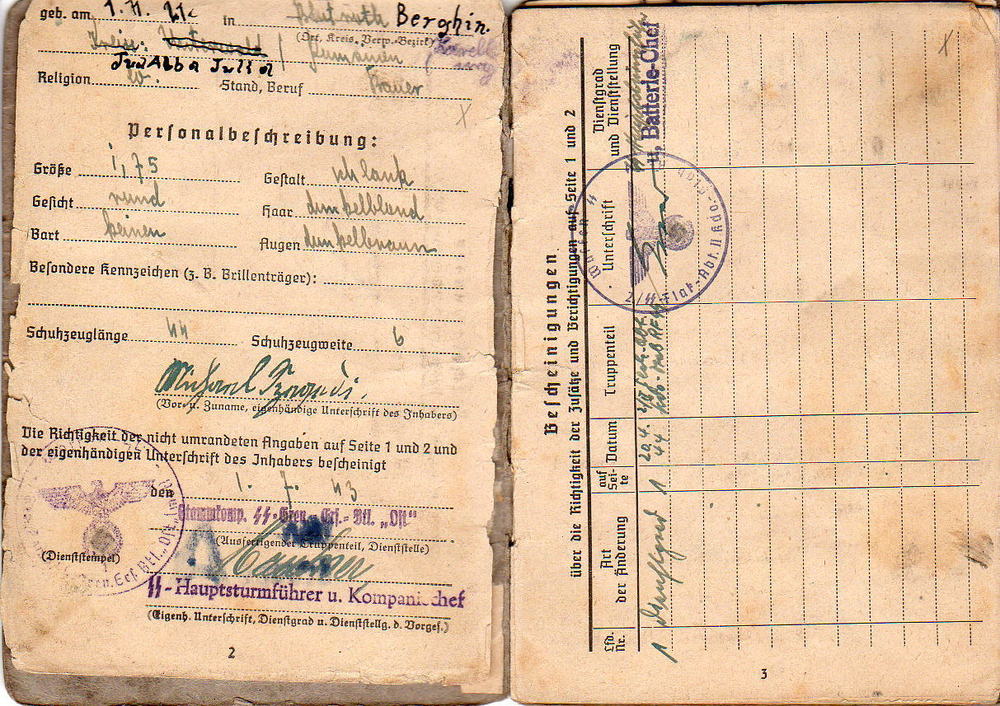 geb. am 1. 11. 21 in Blutroth Berghin.
(Ort, Kreis, Verw.-Bezirk)
Kreis: Unterwald / Rumänien
Jud Alba Julia
Religion ev. Stand, Beruf Bauer
Personalbeschreibung:
Größe 1,75 Gestalt schlank
Gesicht rund Haar dunkelblond
Bart keinen Augen dunkelbraun
Besondere Kennzeichen (z. B. Brillenträger):
Schuhzeuglänge 44 Schuhzeugweite 6
Michael
(Vor- u. Zuname, eigenhändige Unterschrift des Inhabers)
Die Richtigkeit der nicht umrandeten Angaben auf Seite 1 und 2 und
der eigenhändigen Unterschrift des Inhabers bescheinigt
den 1. 7. 43
Stammkomp. SS-Gren.-Ers.-Btl. „Ost"
(Ausfertigender Truppenteil, Dienststelle)
(Dienststempel)
SS-Hauptsturmführer u. Kompaniechef
(Eigenh. Unterschrift, Dienstgrad u. Dienststellg. d. Vorges.)
2
Bescheinigungen
über die Richtigkeit der Zusätze und Berichtigungen auf Seite 1 und 2
Lfd. Nr.
Art der Änderung
auf Seite
Datum
Truppenteil
Unterschrift
Dienstgrad und Dienststellung
1 Dienstgrad 1 20.4. 44
u. Batterie-Chef
Waffen SS
2/SS-Flak-Abt.
3